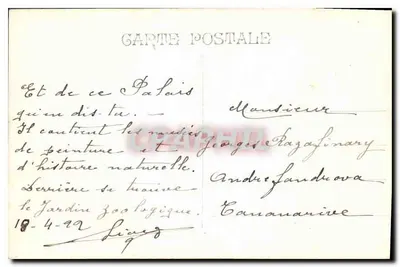 CARTE POSTALE
Et de ce Palais
qu'en dis-tu. -
Il contient les musées
de peinture et
d'histoire naturelle.
Derrière se trouve
le Jardin zoologique.
18-4-22
Monsieur
Georges Razafinary
Andrefandrova
Tananarive